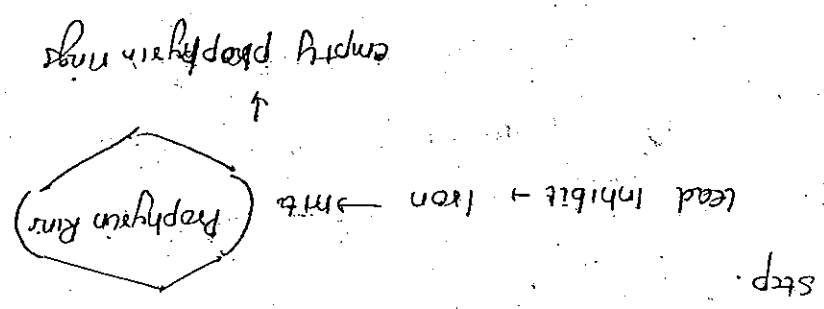 Step.
Lead Inhibit → Iron → into Prophyrin Ring
↓
empty prophyrin rings